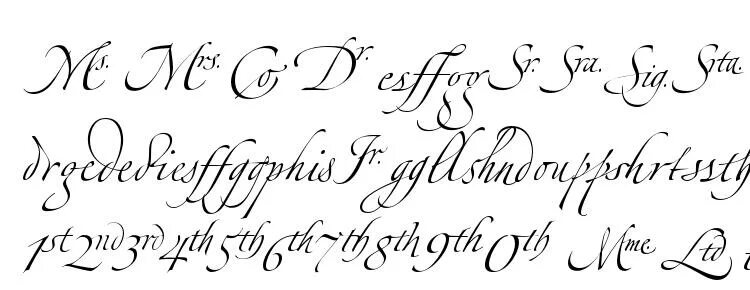 Ms. Mrs. Co Dr. es ff og Sr. Sra. Sig. Srta.
dr ge de d ie sf fg gp his Jr. gg ll sh nd ou pp sh rt ss th
1st 2nd 3rd 4th 5th 6th 7th 8th 9th 0th Mme. Ltd